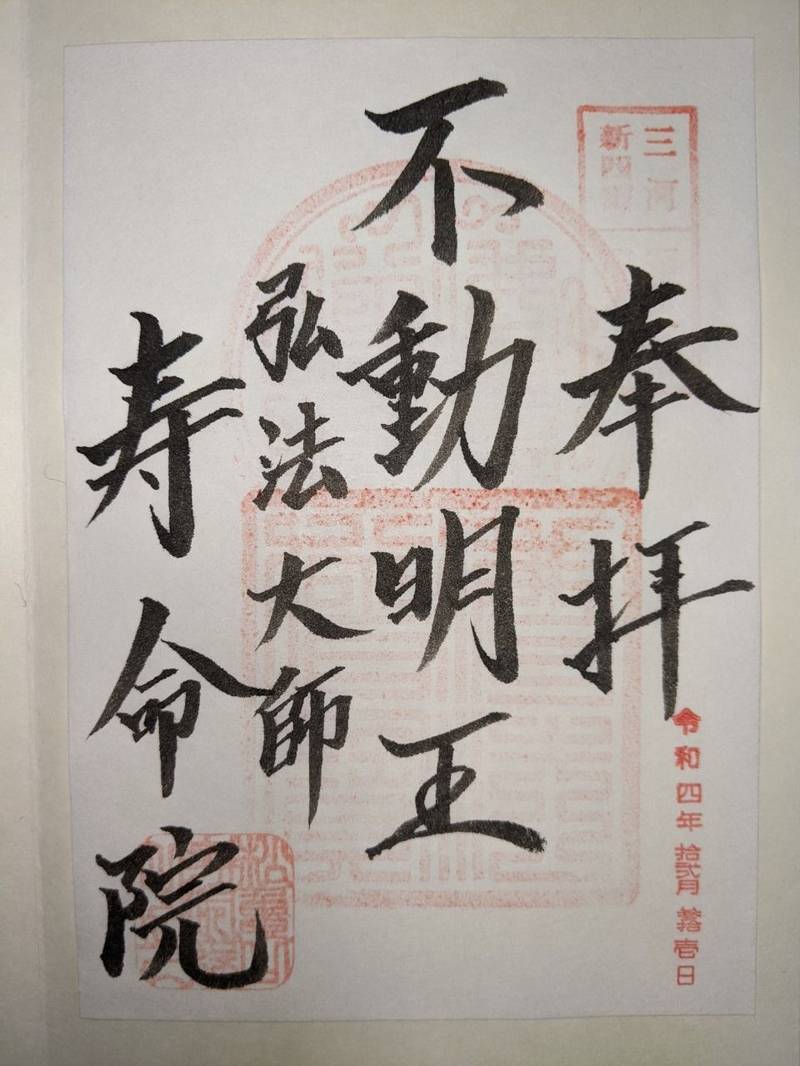 三河
新四國
奉拝
令和四年拾弐月拾壱日
不動明王
弘法大師
寿命院